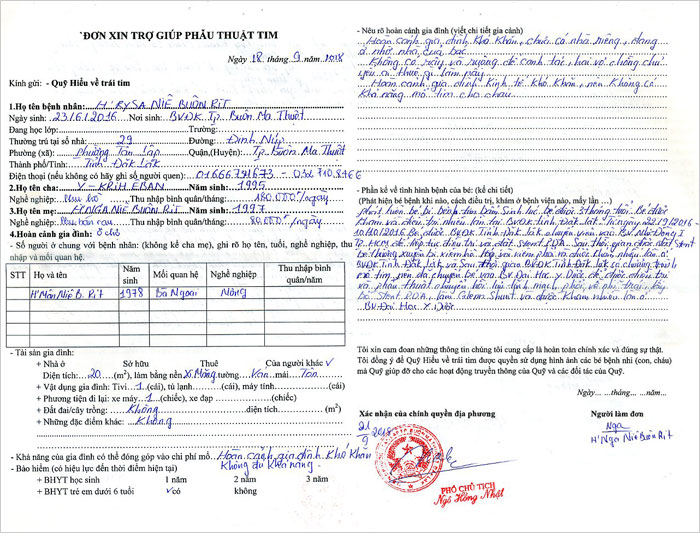 ĐƠN XIN TRỢ GIÚP PHẪU THUẬT TIM
Ngày 18 tháng 9 năm 2018
Kính gửi: - Quỹ Hiểu về trái tim
1.Họ tên bệnh nhân: H' RYSA NIÊ BUÔN RIT
Ngày sinh: 23/6/2016 Nơi sinh: BVĐK Tp. Buôn Ma Thuột
Đang học lớp: Trường:
Thường trú tại số nhà: 29 Đường: Đinh Núp
Phường (xã): Phường Tân Lập Quận,(Huyện): Tp. Buôn Ma Thuột
Thành phố/Tỉnh: Tỉnh Đăk Lăk
Điện thoại (nếu không có hãy ghi số người quen): 01666791673
2.Họ tên cha: Y - KRIH EBAN Năm sinh: 1995
Nghề nghiệp: Thu nhập bình quân/tháng: 180.000đ/ngày
3.Họ tên mẹ: H' NGA NIÊ BUÔN RIT Năm sinh: 1997
Nghề nghiệp: Thu nhập bình quân/tháng: 80.000đ/ngày
4.Hoàn cảnh gia đình:
- Số người ở chung với bệnh nhân: (không kể cha mẹ), ghi rõ họ tên, tuổi, nghề nghiệp, thu
nhập và mối quan hệ.
STT Họ và tên Năm sinh Mối quan hệ Nghề nghiệp Thu nhập bình quân/năm
H' Mân Niê B. Rit 1978 Bà Ngoại Nông
- Tài sản gia đình:
+ Nhà ở Sở hữu Thuê Của người khác v
Diện tích: 20 (m²), làm bằng nền Xi Măng tường Ván mái Tôn
+ Vật dụng gia đình: Tivi. 1 (cái), tủ lạnh (cái), máy tính (cái)
+ Phương tiện đi lại: xe máy 1 (chiếc), xe đạp (chiếc)
+ Đất đai/cây trồng: Không diện tích (m²)
+ Những đặc điểm khác: Không
- Khả năng của gia đình có thể đóng góp vào chi phí mổ: Hoàn cảnh gia đình Khó Khăn
Không đủ Khả năng.
- Bảo hiểm (có hiệu lực đến thời điểm hiện tại)
+ BHYT học sinh 1 năm 2 năm 3 năm
+ BHYT trẻ em dưới 6 tuổi v có không
- Nêu rõ hoàn cảnh gia đình (viết chi tiết gia cảnh)
Hoàn cảnh gia đình Khó Khăn, chưa có nhà riêng, đang
ở nhờ nhà
Không có rẫy và ruộng để canh tác, hai vợ chồng chủ
yếu
Hoàn cảnh gia đình Kinh tế Khó Khăn, nên Không có
Khả năng mổ tim cho cháu
- Phần kể về tình hình bệnh của bé: (kể chi tiết)
(Phát hiện bé bệnh khi nào, khám ở bệnh viện nào, mấy lần ...)
Phát hiện bé bị bệnh tim bẩm sinh lúc bé được 3 tháng tuổi. Bé được
Khám và điều trị nhiều lần tại BVĐK Tỉnh Đăk Lăk. Từ ngày 22/9/2016
10/10/2016 Bé được BVĐK Tỉnh Đăk Lăk chuyển viện vào BV Nhi Đồng I
Tp. HCM để tiếp tục điều trị và đặt Stent P.D.A. Sau thời gian được đặt Stent
BVĐK Tỉnh Đăk Lăk và sau thời gian BVĐK Tỉnh Đăk Lăk có chương trình
mổ tim nên đã chuyển bé vào BV Đại Học Y Dược
bỏ Stent P.D.A, làm Glenn Shunt và được Khám nhiều lần ở
BV Đại Học Y Dược
Tôi xin cam đoan những thông tin chúng tôi cung cấp là hoàn toàn chính xác và đúng sự thật.
Tôi đồng ý để Quỹ Hiểu về trái tim được quyền sử dụng hình ảnh các bé bệnh nhi (con, cháu)
mà Quỹ giúp đỡ cho các hoạt động truyền thông của Quỹ và các đối tác của Quỹ.
Ngày... tháng ... năm...
Xác nhận của chính quyền địa phương Người làm đơn
21
9 2018
Nga
H' Nga Niê Buôn Rit
PHÓ CHỦ TỊCH
Ngô Hồng Nhật